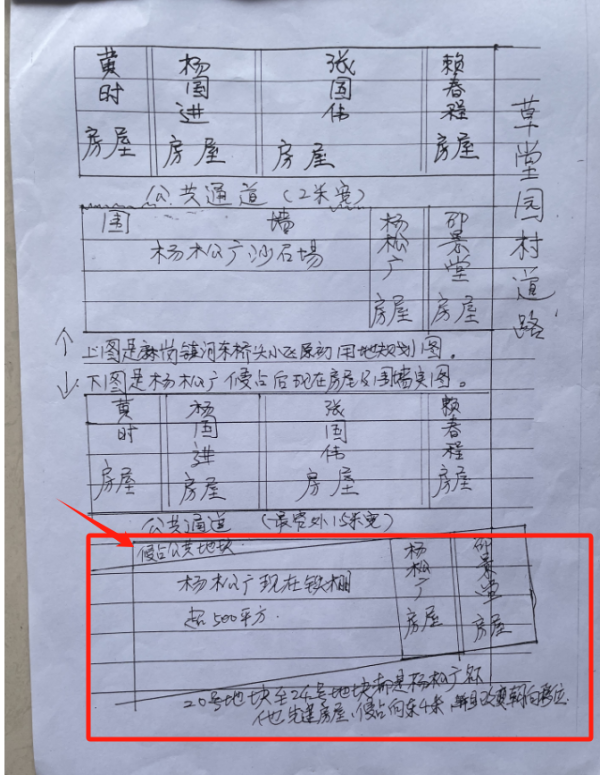 黄时房屋
杨国进房屋
张国伟房屋
赖春程房屋
草堂园村道路
公共通道（2米宽）
围墙
杨松广沙石場
杨松广房屋
邵景堂房屋
上图是麻岗镇河东桥头小区原动用地规划图。
下图是杨松广侵占后现在房屋及围墙实图。
黄时房屋
杨国进房屋
张国伟房屋
赖春程房屋
公共通道（最宽处1.5米宽）
侵占公共地块
杨松广现在铁棚
超500平方.
杨松广房屋
邵景堂房屋
20号地块至24号地块都是杨松广的
他先建房屋、侵占向东4米,并且改变朝向方位.